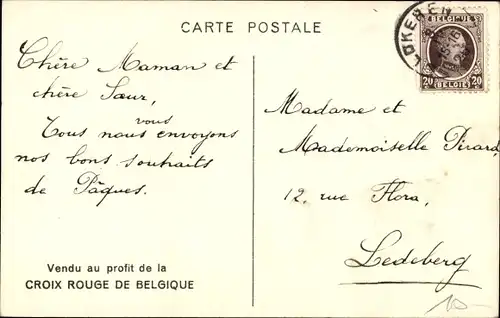 CARTE POSTALE
LOKEREN
BELGIQUE
20 BELGIË 20
Chère Maman et
chère Sœur,
vous
Tous nous envoyons
nos bons souhaits
de Pâques.
Vendu au profit de la
CROIX ROUGE DE BELGIQUE
Madame et
Mademoiselle Pirard
12, rue Flora,
Ledeberg